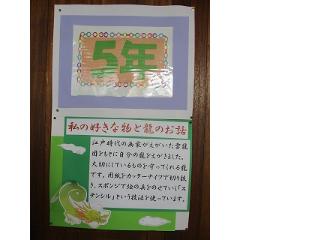 5年
私の好きな物と龍のお話
江戸時代の画家がえがいた雲龍
図をもとに自分の龍をえがきました。
大切にしているものを守ってくれる龍
です。用紙をカッターナイフで切り抜
き、スポンジで絵の具をのせていく「ス
テンシル」という技法を使っています。